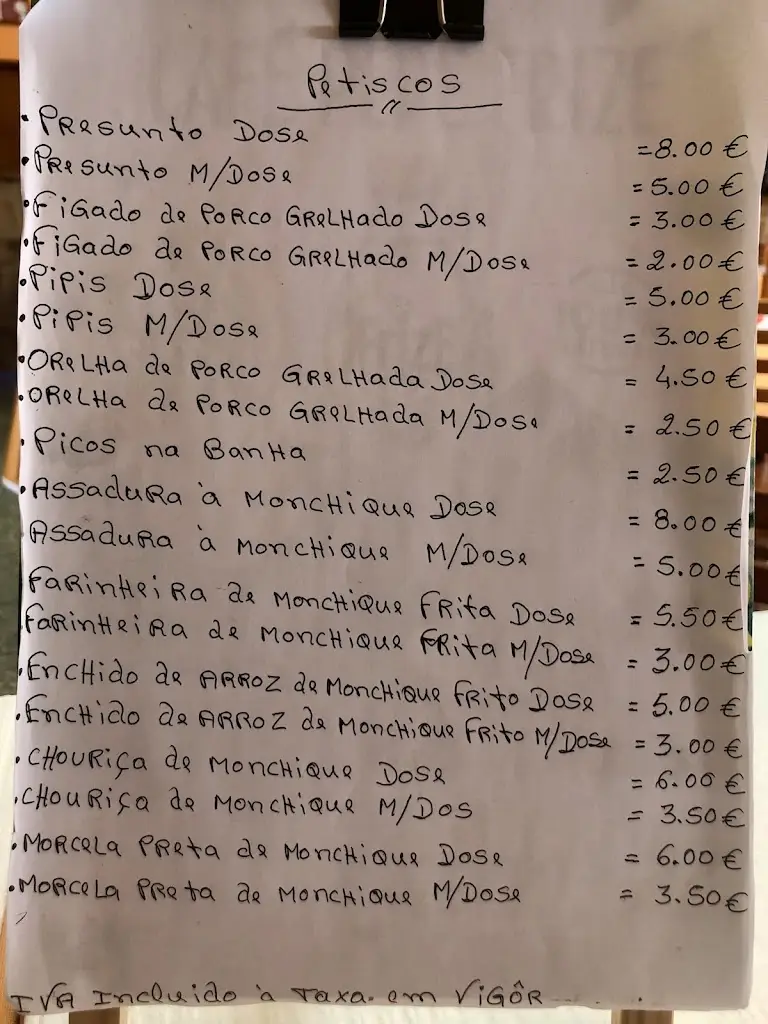 Petiscos
• Presunto Dose = 8.00 €
• Presunto M/Dose = 5.00 €
• Figado de Porco Grelhado Dose = 3.00 €
• Figado de Porco Grelhado M/Dose = 2.00 €
• Pipis Dose = 5.00 €
• Pipis M/Dose = 3.00 €
• Orelha de Porco Grelhada Dose = 4.50 €
• Orelha de Porco Grelhada M/Dose = 2.50 €
• Picos na Banha = 2.50 €
• Assadura à Monchique Dose = 8.00 €
Assadura à Monchique M/Dose = 5.00 €
Farinheira de Monchique Frita Dose = 5.50 €
Farinheira de Monchique Frita M/Dose = 3.00 €
• Enchido de Arroz de Monchique Frito Dose = 5.00 €
• Enchido de Arroz de Monchique Frito M/Dose = 3.00 €
• Chouriça de Monchique Dose = 6.00 €
• Chouriça de Monchique M/Dos = 3.50 €
• Morcela Preta de Monchique Dose = 6.00 €
• Morcela Preta de Monchique M/Dose = 3.50 €
IVA Incluido à Taxa. em Vigôr